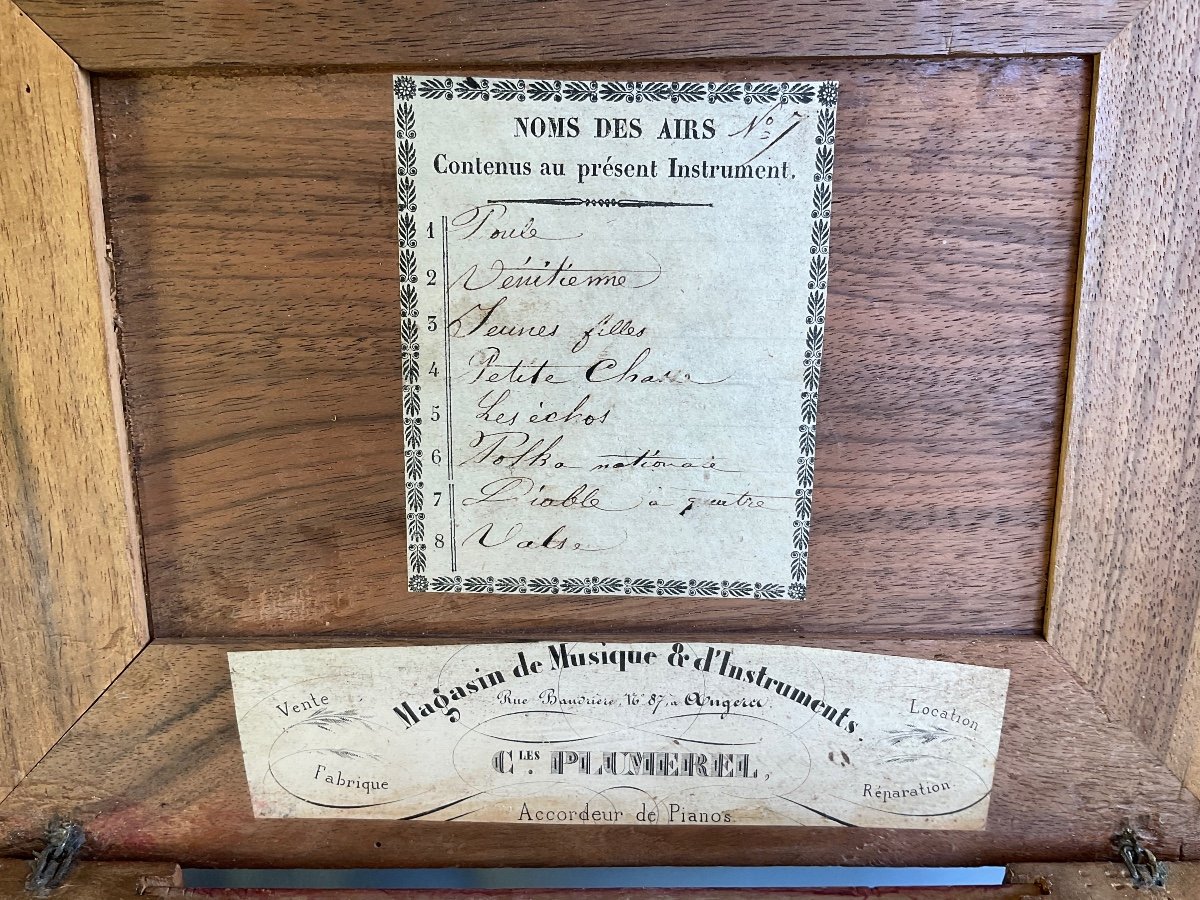 NOMS DES AIRS No 7
Contenus au présent Instrument.
1 Poule
2 Vénitienne
3 Jeunes filles
4 Petite Chasse
5 Les échos
6 Polka nationale
7 Diable à quatre
8 Valse
Magasin de Musique & d'Instruments.
Vente
Rue Baudrière, No 87, à Angers.
Location
CLES. PLUMEREL,
Fabrique
Réparation.
Accordeur de Pianos